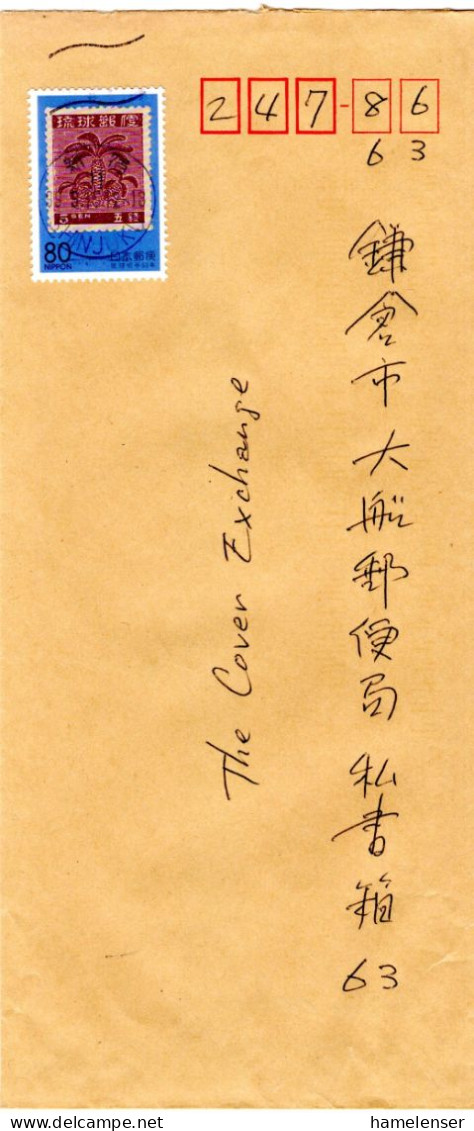 247-86
63
琉球郵便
5 SEN 五銭
80
NIPPON
日本郵便
鎌倉市大船郵便局私書箱63
The Cover Exchange
www.delcampe.net
hamelenser